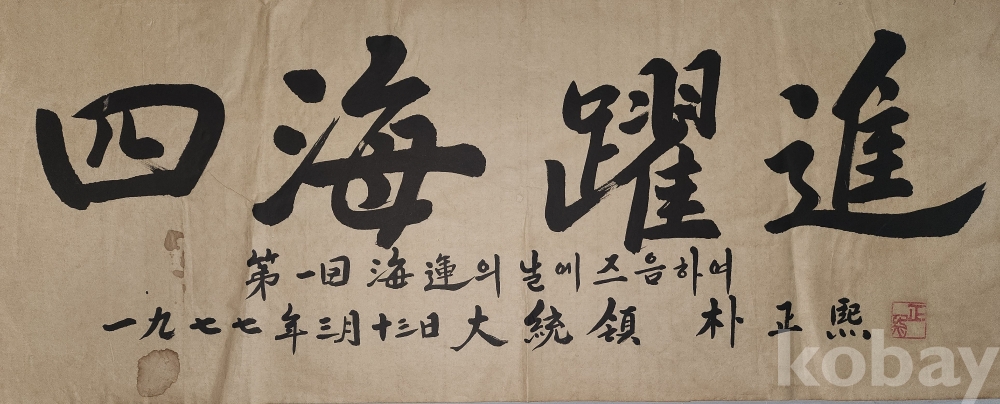 四海躍進
第一回 海運의 날에 즈음하여
一九七七年 三月 十三日 大統領 朴正熙
正熙
kobay